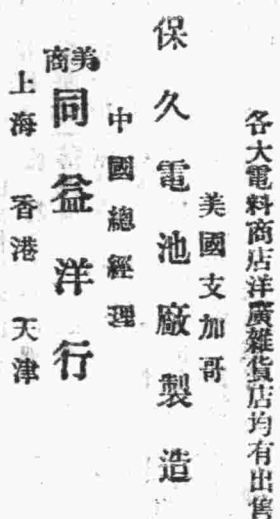 各大電料商店洋廣雜貨店均有出售
美國支加哥
保久電池廠製造
中國總經理
美商同益洋行
上海 香港 天津